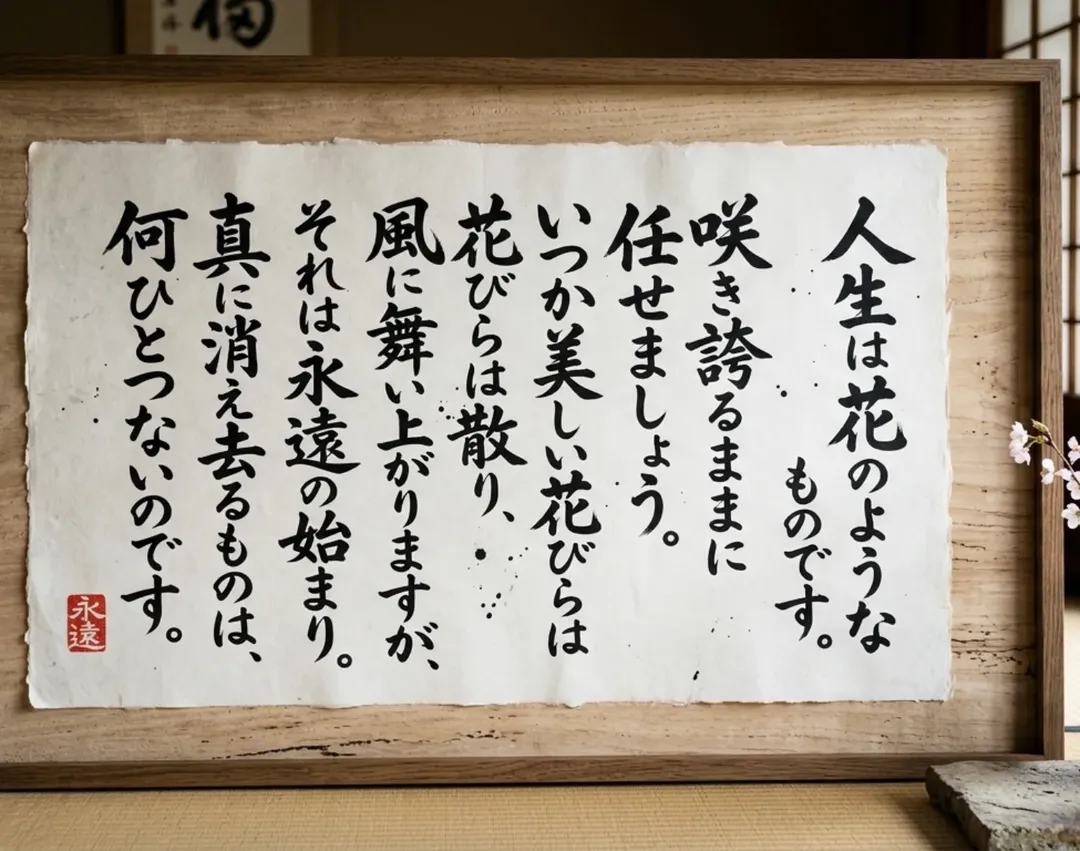 人生は花のような
ものです。
咲き誇るままに
任せましょう。
いつか美しい花びらは
花びらは散り、
風に舞い上がりますが、
それは永遠の始まり。
真に消え去るものは、
何ひとつないのです。
永遠